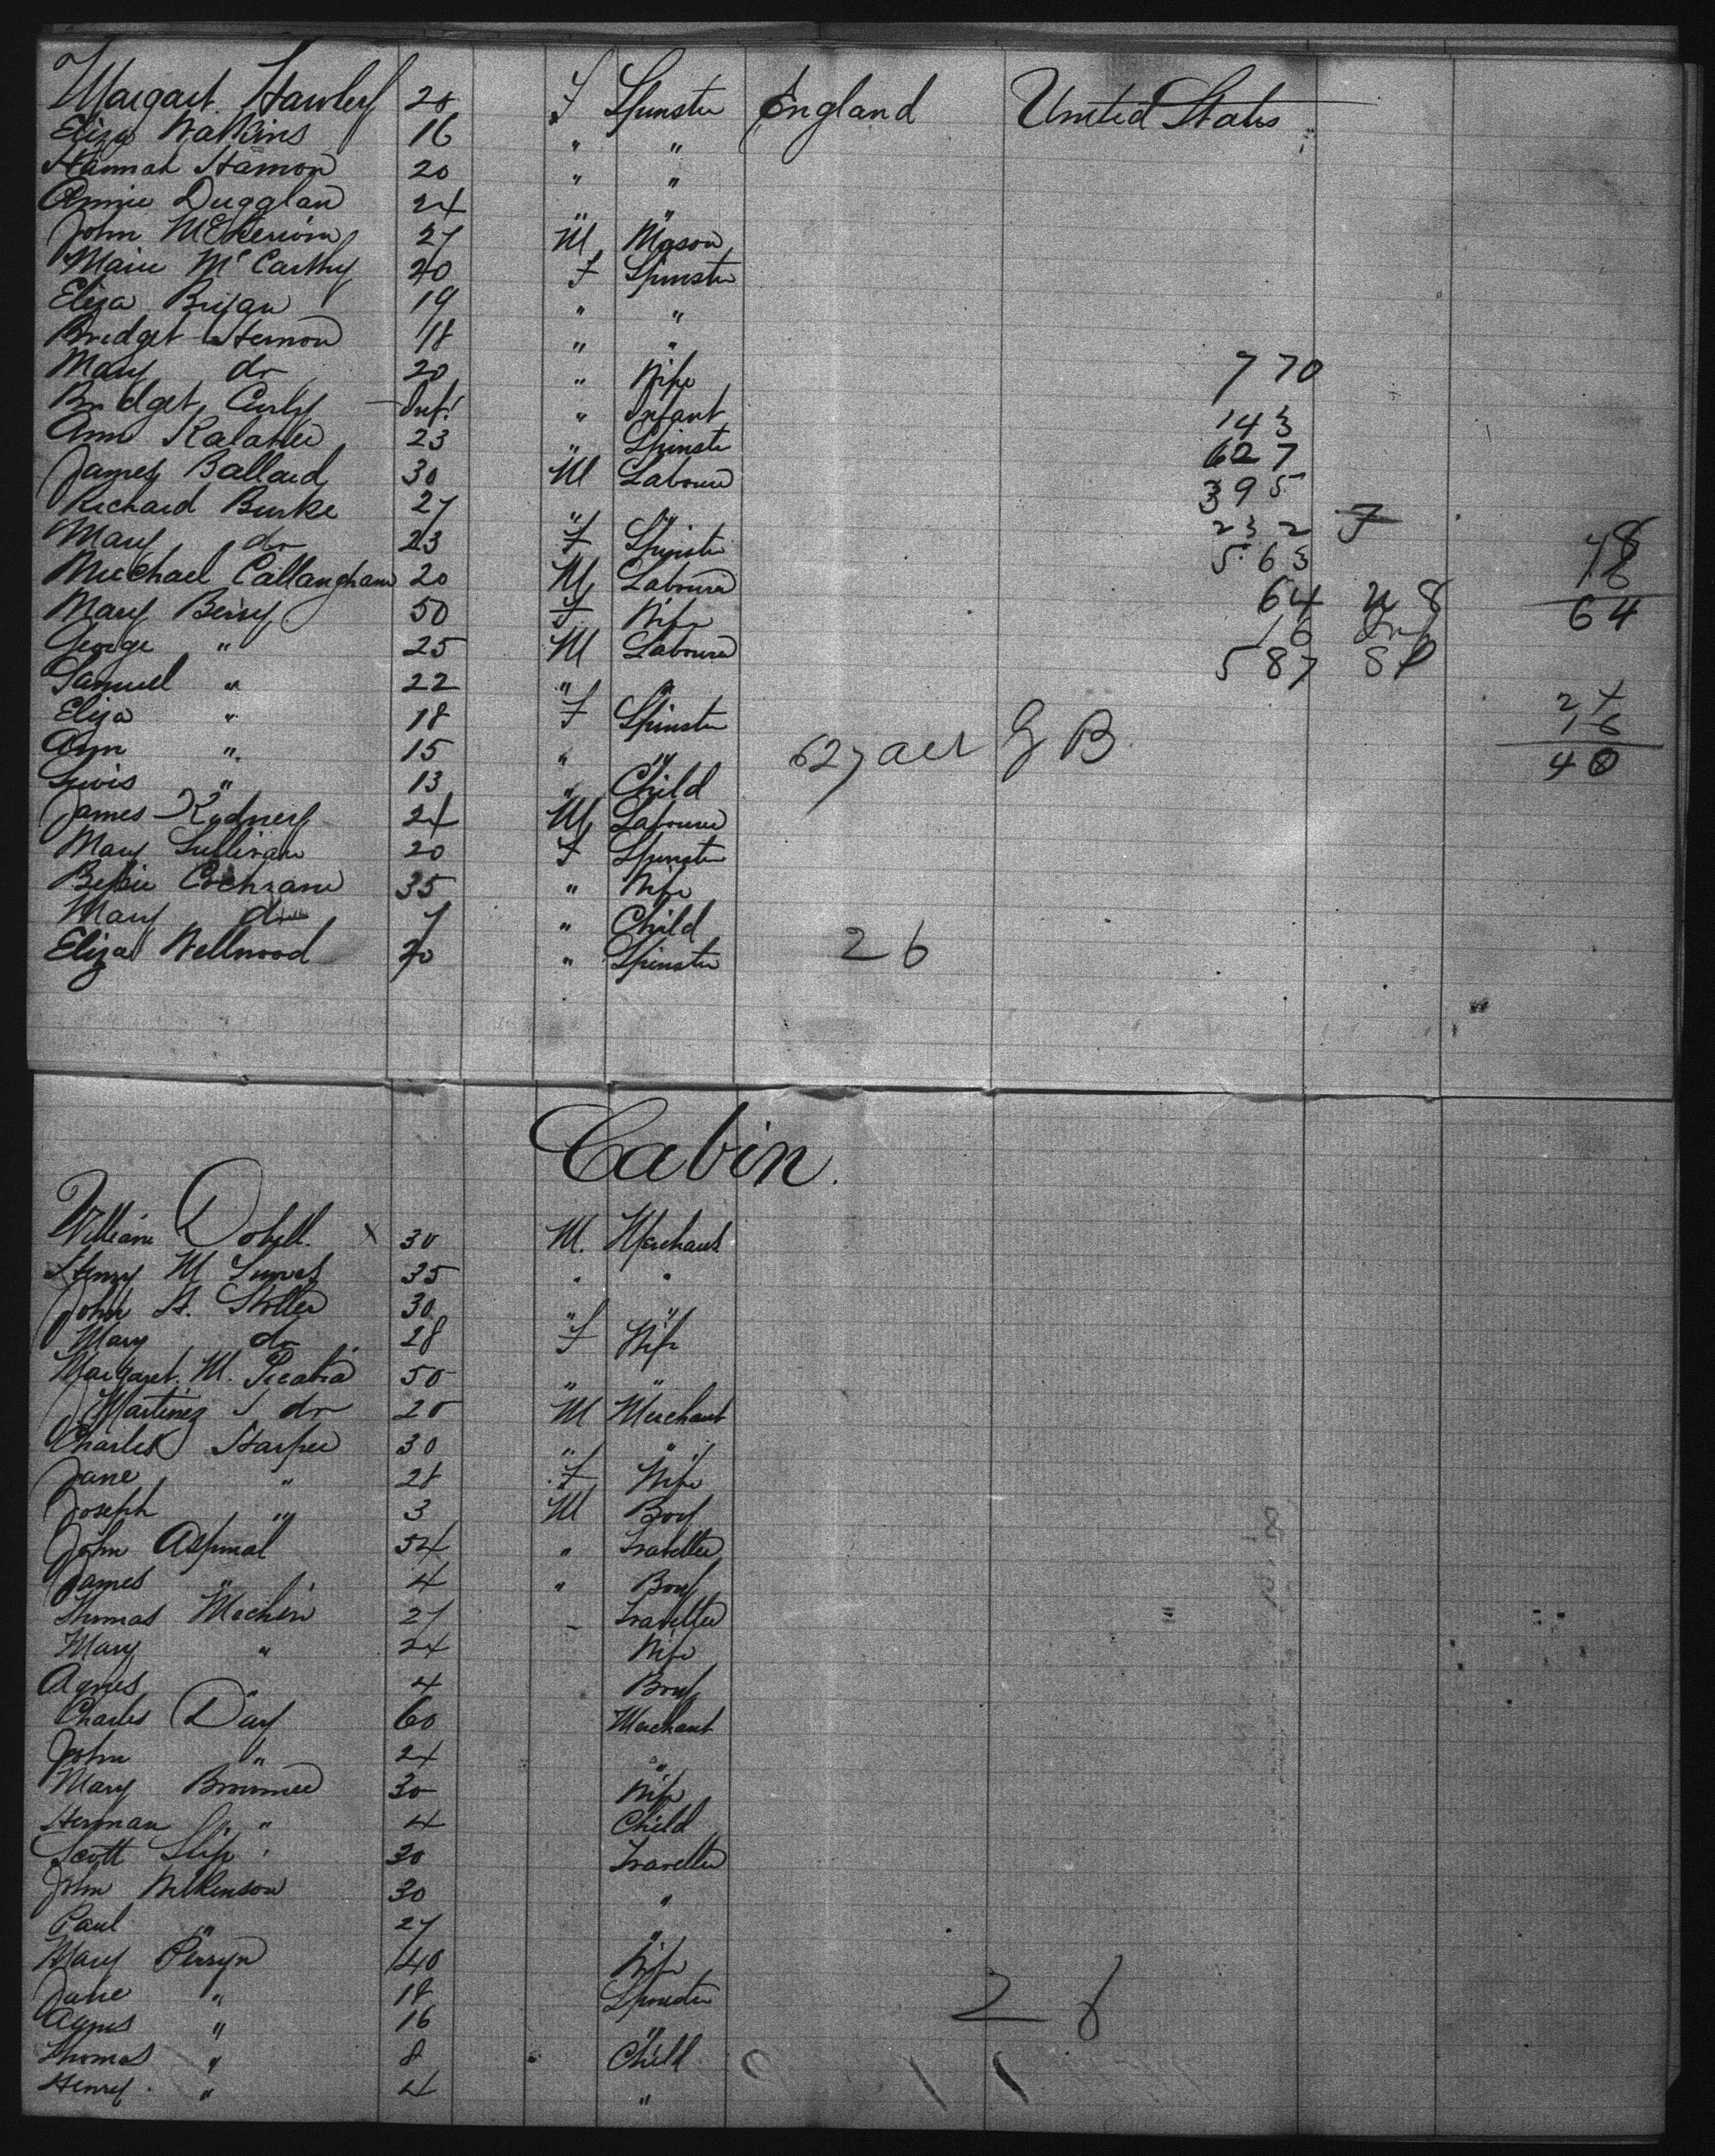 Margaret Hawley 20 F Spinster England United States
Eliza Watkins 16 " "
Hannah Hamon 20 " "
Annie Dugglan 24 " "
John 27 M Mason
Marie McCarthy 20 F Spinster
Eliza Bryan 19 " "
Bridget Hernon 18 " "
Mary do 20 " Wife 770
Bridget Curly Inft " Infant 143
Ann 23 " Spinster 627
James Ballard 30 M Labourer 395
Richard Burke 27 " " 232 F
Mary do 23 F Spinster 563 48
Michael Callangham 20 M Labourer 64 U S 16
Mary Berry 50 F Wife 16 64
George " 25 M Labourer 587
Samuel " 22 " " 24
Eliza " 18 F Spinster 16
Ann " 15 " " 627 G B 40
Lewis " 13 " Child
James Kydney 24 M Labourer
Mary Sullivan 20 F Spinster
Bessie Cochrane 35 " Wife
Mary do 7 " Child
Eliza Wellwood 20 " Spinster 26
Cabin.
William Dobell x 30 M. Merchant
Henry M 35 " "
John H. 30 " "
Mary do 28 F Wife
Margaret. M. 50 " "
Martinez do 20 M Merchant
Charles Harper 30 " "
Jane " 28 F Wife
Joseph " 3 M Boy
John Aspinal 54 " Traveller
James " 4 " Boy
Thomas Machin 27 Traveller
Mary " 24 Wife
Agnes " 4 Boy
Charles Day 60 Merchant
John " 24 "
Mary 30 Wife
Herman " 4 Child
Scott 30 Traveller
John Wilkinson 30 "
Paul " 27 "
Mary Perryn 40 Wife
Jane " 18 Spinster
Agnes " 16 " 28
Thomas " 8 Child
Henry " 4 "